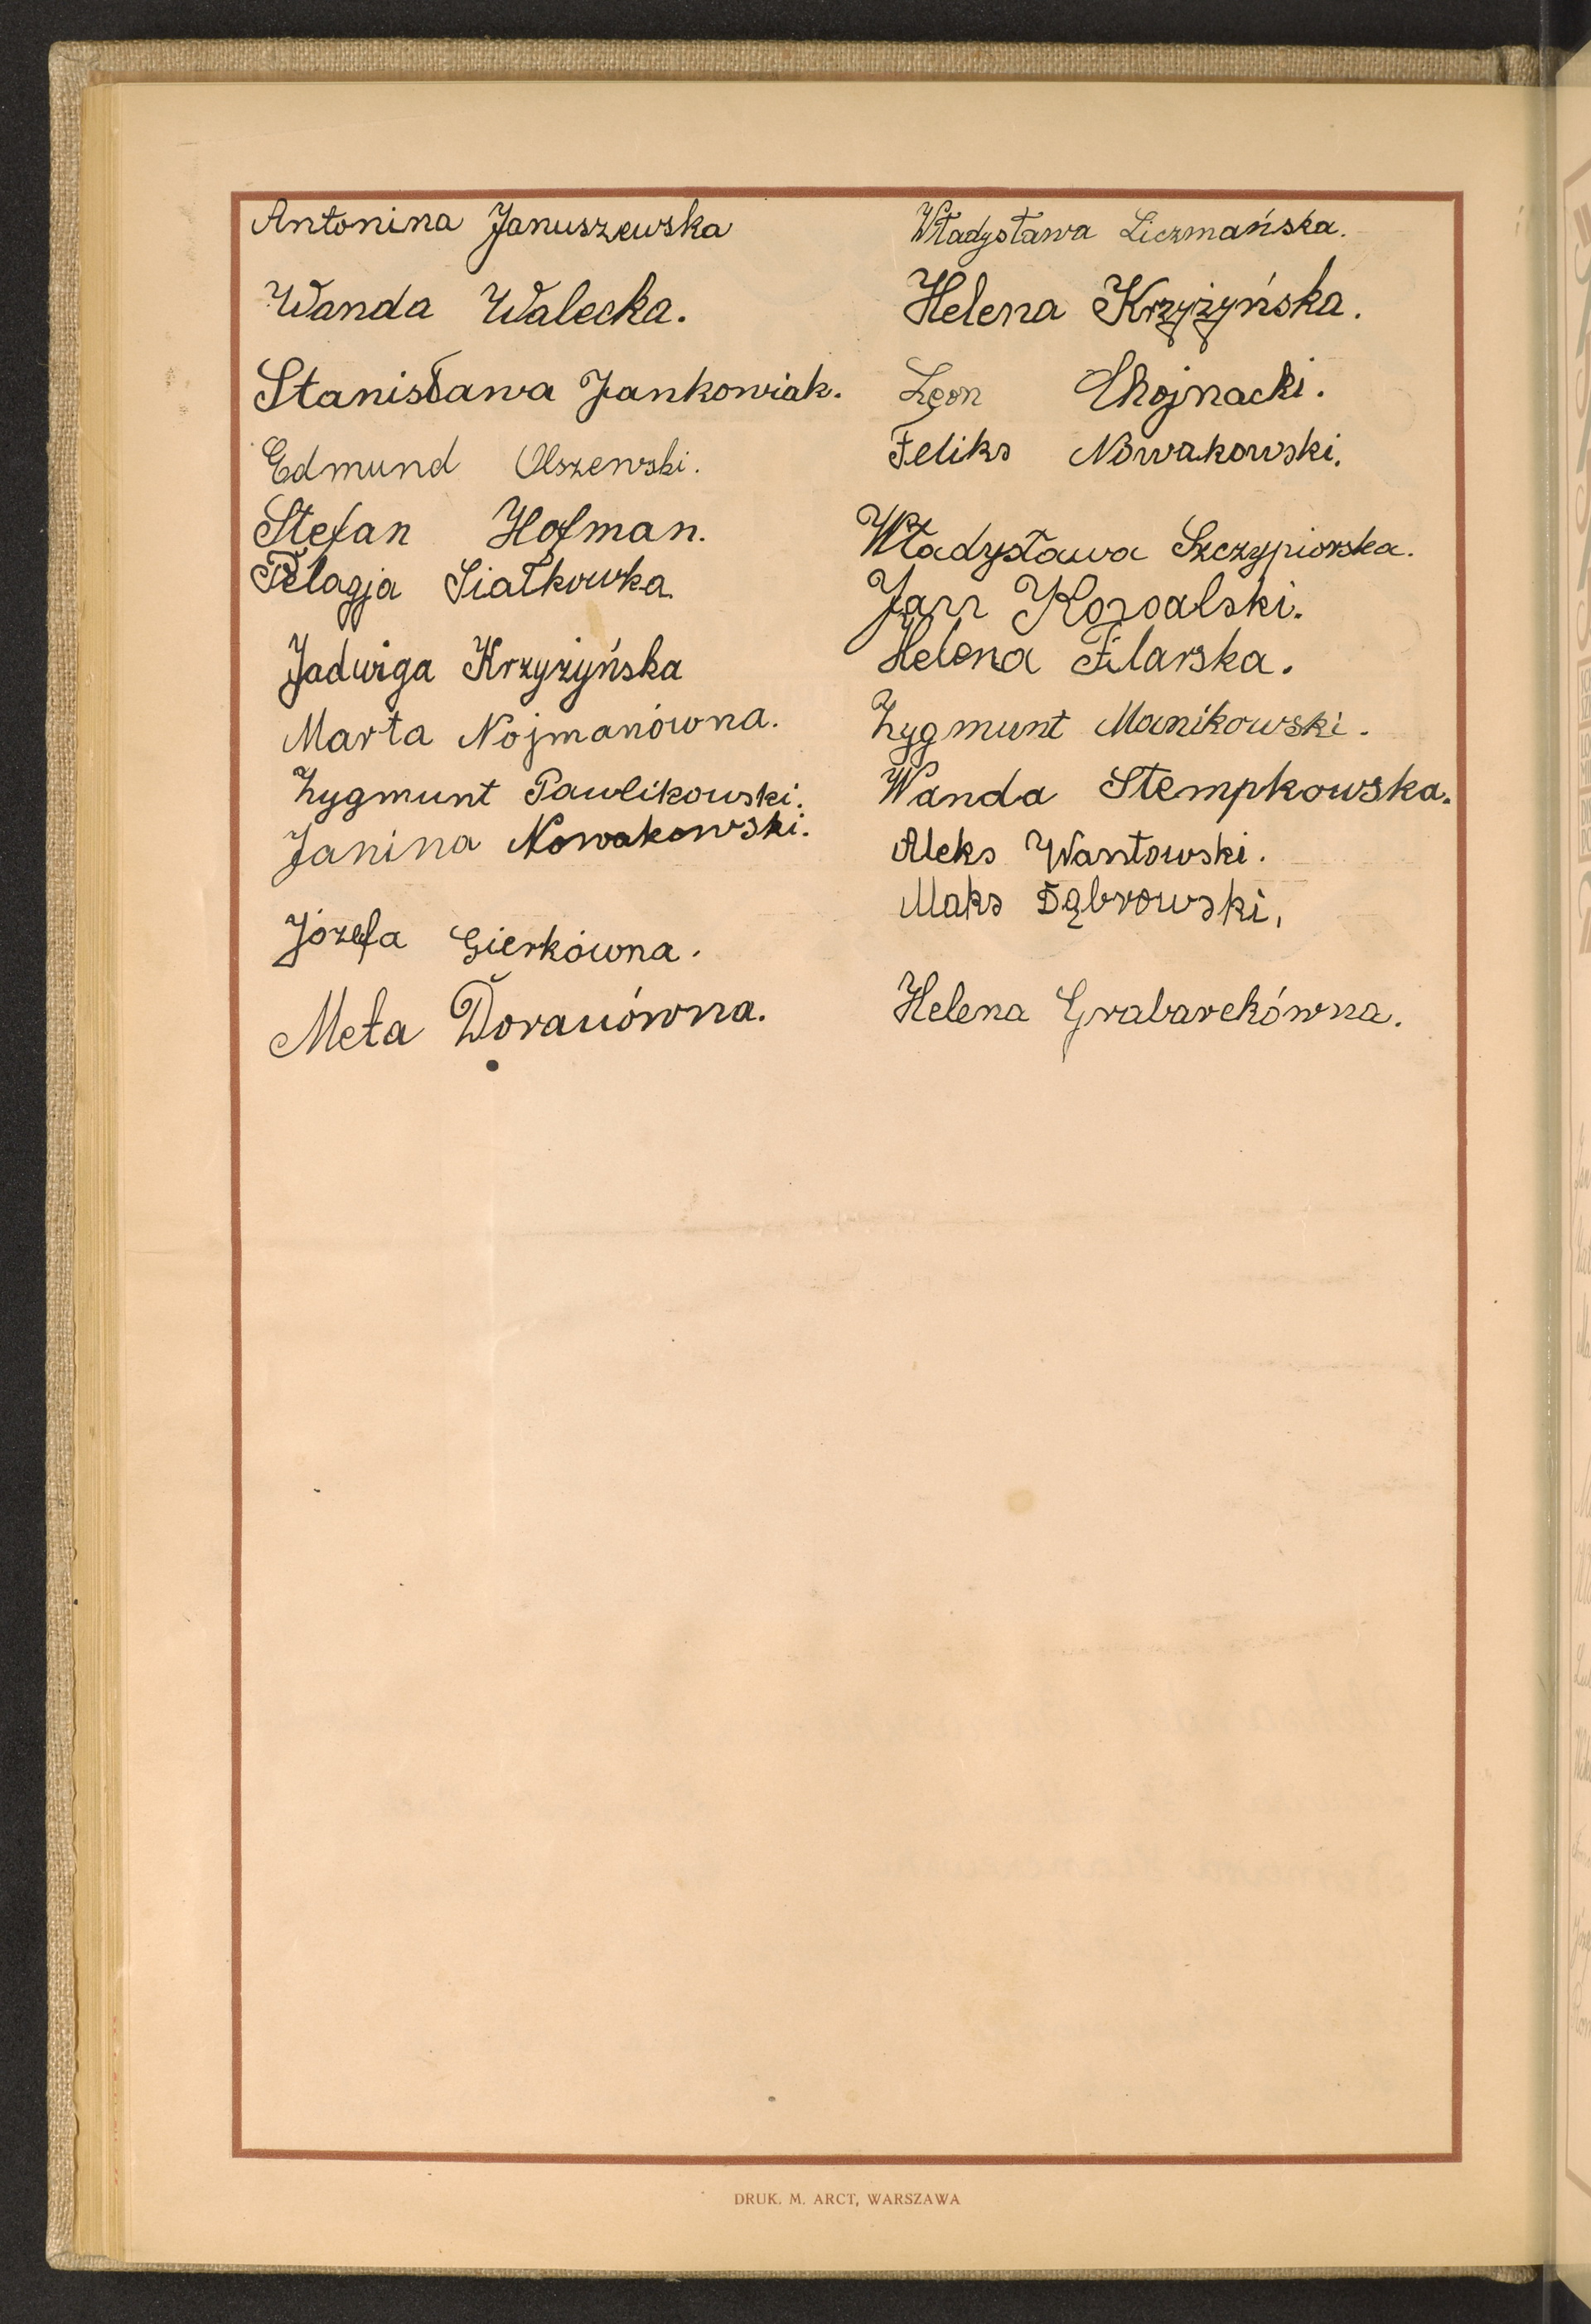 Antonina Januszewska
Wanda Walecka.
Stanisława Jankowiak.
Edmund Olszewski.
Stefan Hofman.
Pelagja Siałkowka.
Jadwiga Krzyżyńska
Marta Nojmanówna.
Zygmunt Pawlikowski.
Janina Nowakowski.
Józefa Gierkówna.
Meta Dorauówna.
Władysława Liczmańska.
Helena Krzyżyńska.
Leon Chojnacki.
Feliks Nowakowski.
Władysława Szczypiorska.
Jan Kowalski.
Helena Filarska.
Zygmunt Manikowski.
Wanda Stempkowska.
Aleks Wantowski.
Maks Dąbrowski.
Helena Grabarekówna.
DRUK. M. ARCT, WARSZAWA